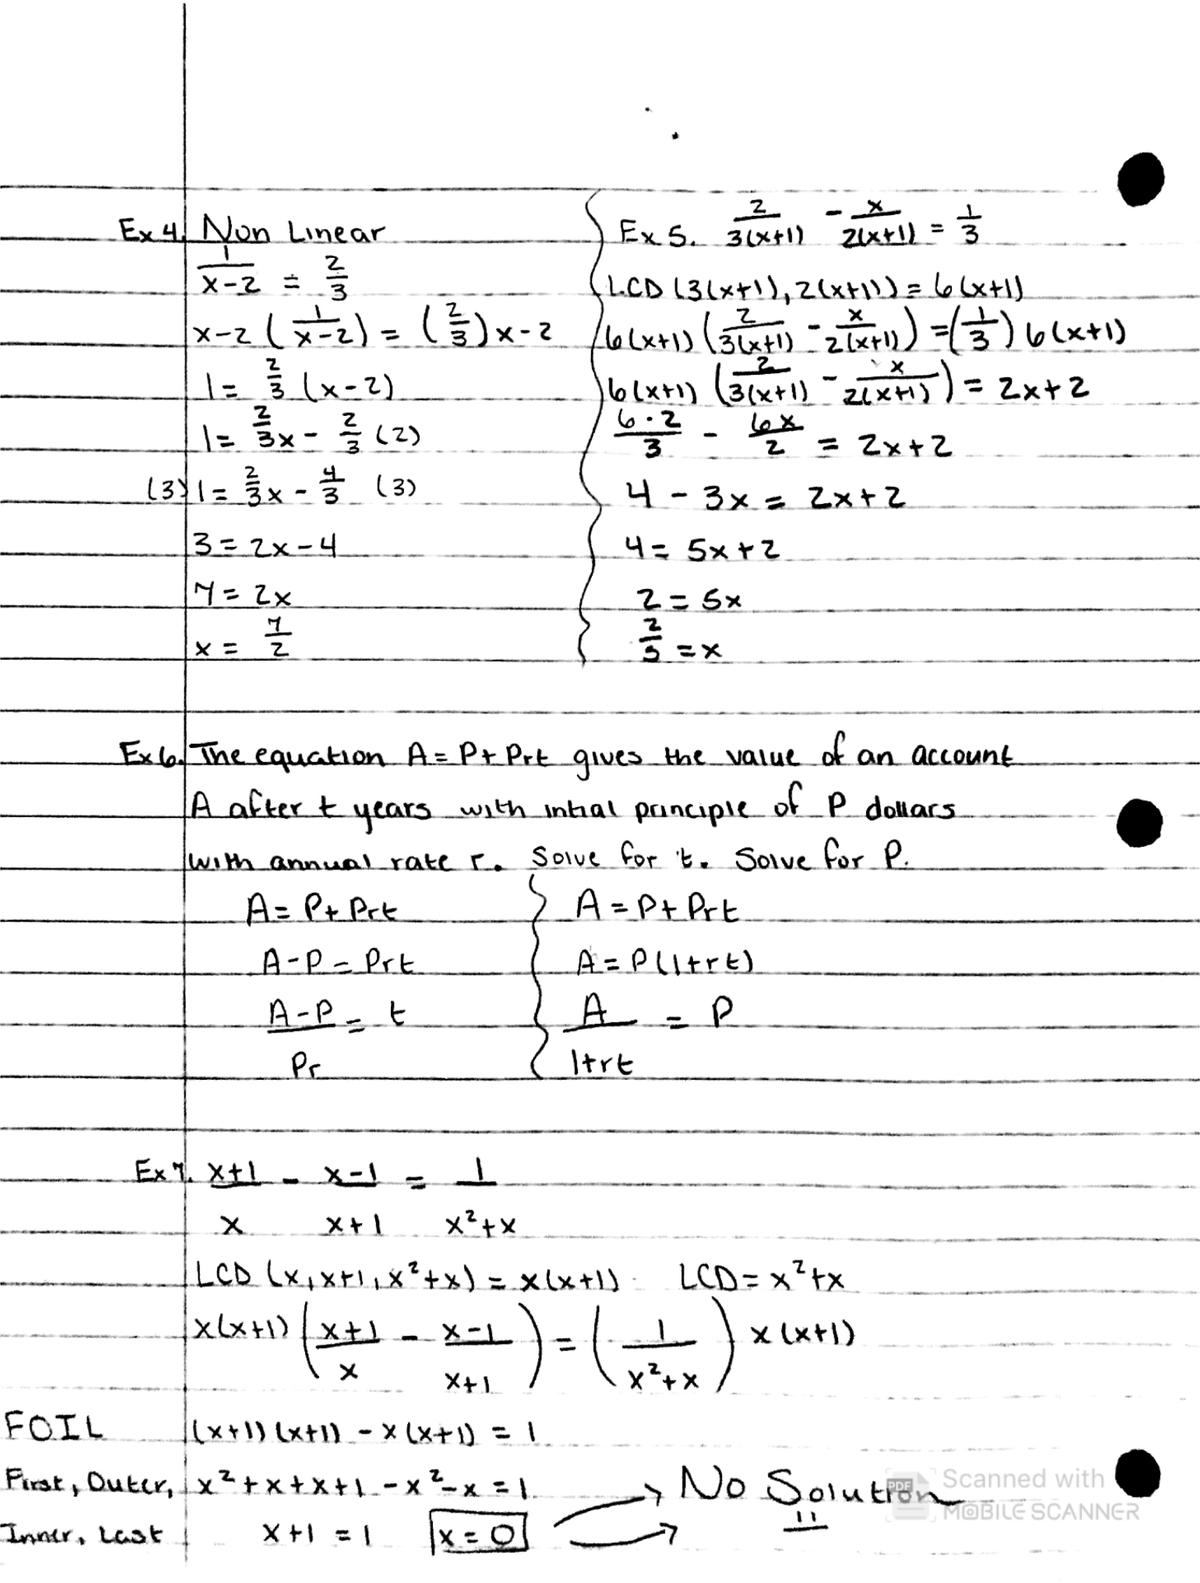 Ex 4. Non Linear
1/(x-2) = 2/3
x-2 (1/(x-2)) = (2/3) x-2
1 = 2/3 (x-2)
1 = 2/3 x - 2/3 (2)
(3) 1 = 2/3 x - 4/3 (3)
3 = 2x-4
7 = 2x
x = 7/2
Ex 5. 2/(3(x+1)) - x/(2(x+1)) = 1/3
LCD (3(x+1), 2(x+1)) = 6(x+1)
6(x+1) (2/(3(x+1)) - x/(2(x+1))) = (1/3) 6(x+1)
6(x+1) (2/(3(x+1)) - x/(2(x+1))) = 2x+2
6·2/3 - 6x/2 = 2x+2
4 - 3x = 2x+2
4 = 5x+2
2 = 5x
2/5 = x
Ex 6. The equation A = P+ Prt gives the value of an account
A after t years with intial principle of P dollars
with annual rate r. Solve for t. Solve for P.
A = P+ Prt
A-P = Prt
(A-P)/Pr = t
A = P+ Prt
A = P(1+rt)
A/(1+rt) = P
Ex 7. (x+1)/x - (x-1)/(x+1) = 1/(x²+x)
LCD (x, x+1, x²+x) = x(x+1) LCD = x²+x
x(x+1) ((x+1)/x - (x-1)/(x+1)) = (1/(x²+x)) x(x+1)
FOIL (x+1)(x+1) - x(x+1) = 1
First, Outer, x²+x+x+1-x²-x = 1 → No Solution
Inner, Last x+1 = 1 x = 0 →
PDF Scanned with
MOBILE SCANNER